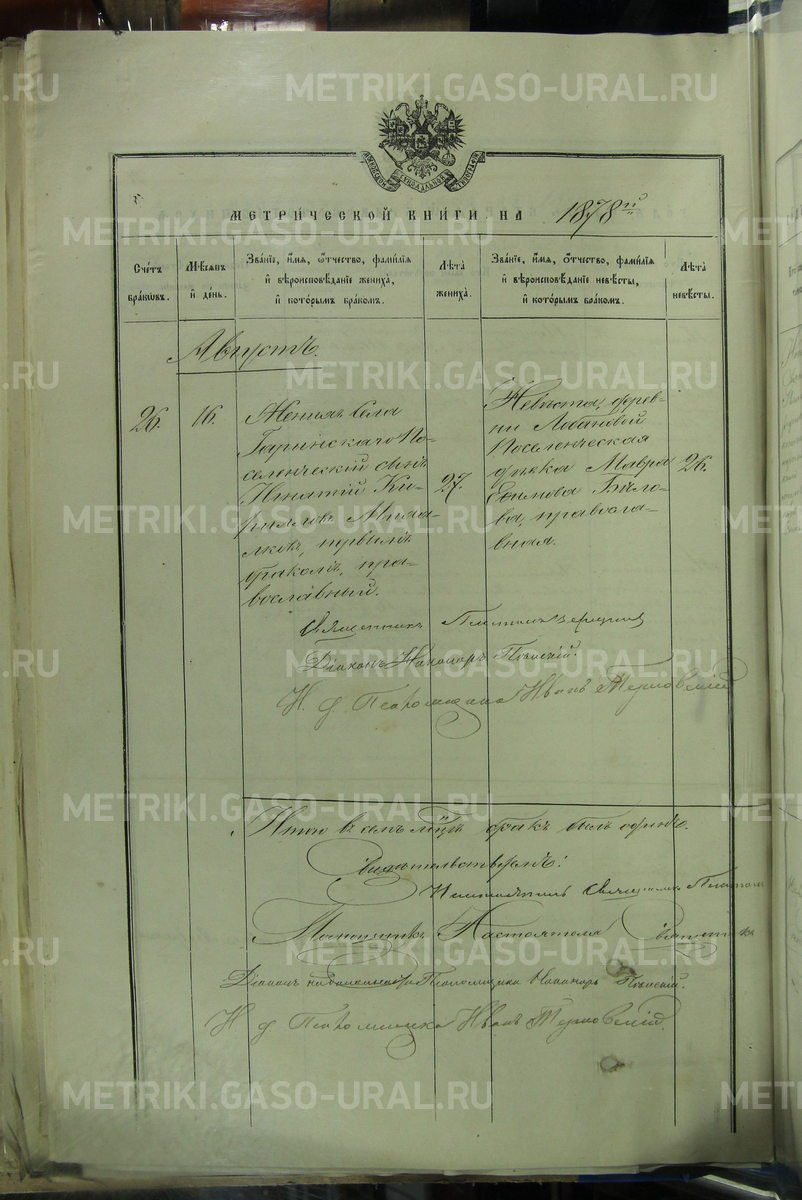 МЕТРИЧЕСКОЙ КНИГИ НА 1878й
Счетъ браковъ.
Мѣсяцъ и день.
Званіе, имя, отчество, фамилія и вѣроисповѣданіе жениха, и которымъ бракомъ.
Лѣта жениха.
Званіе, имя, отчество, фамилія и вѣроисповѣданіе невѣсты, и которымъ бракомъ.
Лѣта невѣсты.
Августъ.
26.
16.
Женихъ села
Гаринскаго По-
селенческій сынъ
Игнатій Ки-
риловъ
первымъ
бракомъ, пра-
вославный.
27.
Невѣста, дерев-
ни Лобановой
Поселенческая
дѣвка Мавра
Ефимова Бѣло-
ва, православ-
вная.
26.
Священникъ
Діаконъ Никаноръ
И. д. Псаломщика Иванъ Терновскій
Итого въ семъ мѣсяцѣ бракъ былъ одинъ.
Священникъ
Помощникъ Настоятеля Священникъ
Діаконъ на Псаломщика Никаноръ
И д Псаломщика Иванъ Терновскій.
METRIKI.GASO-URAL.RU